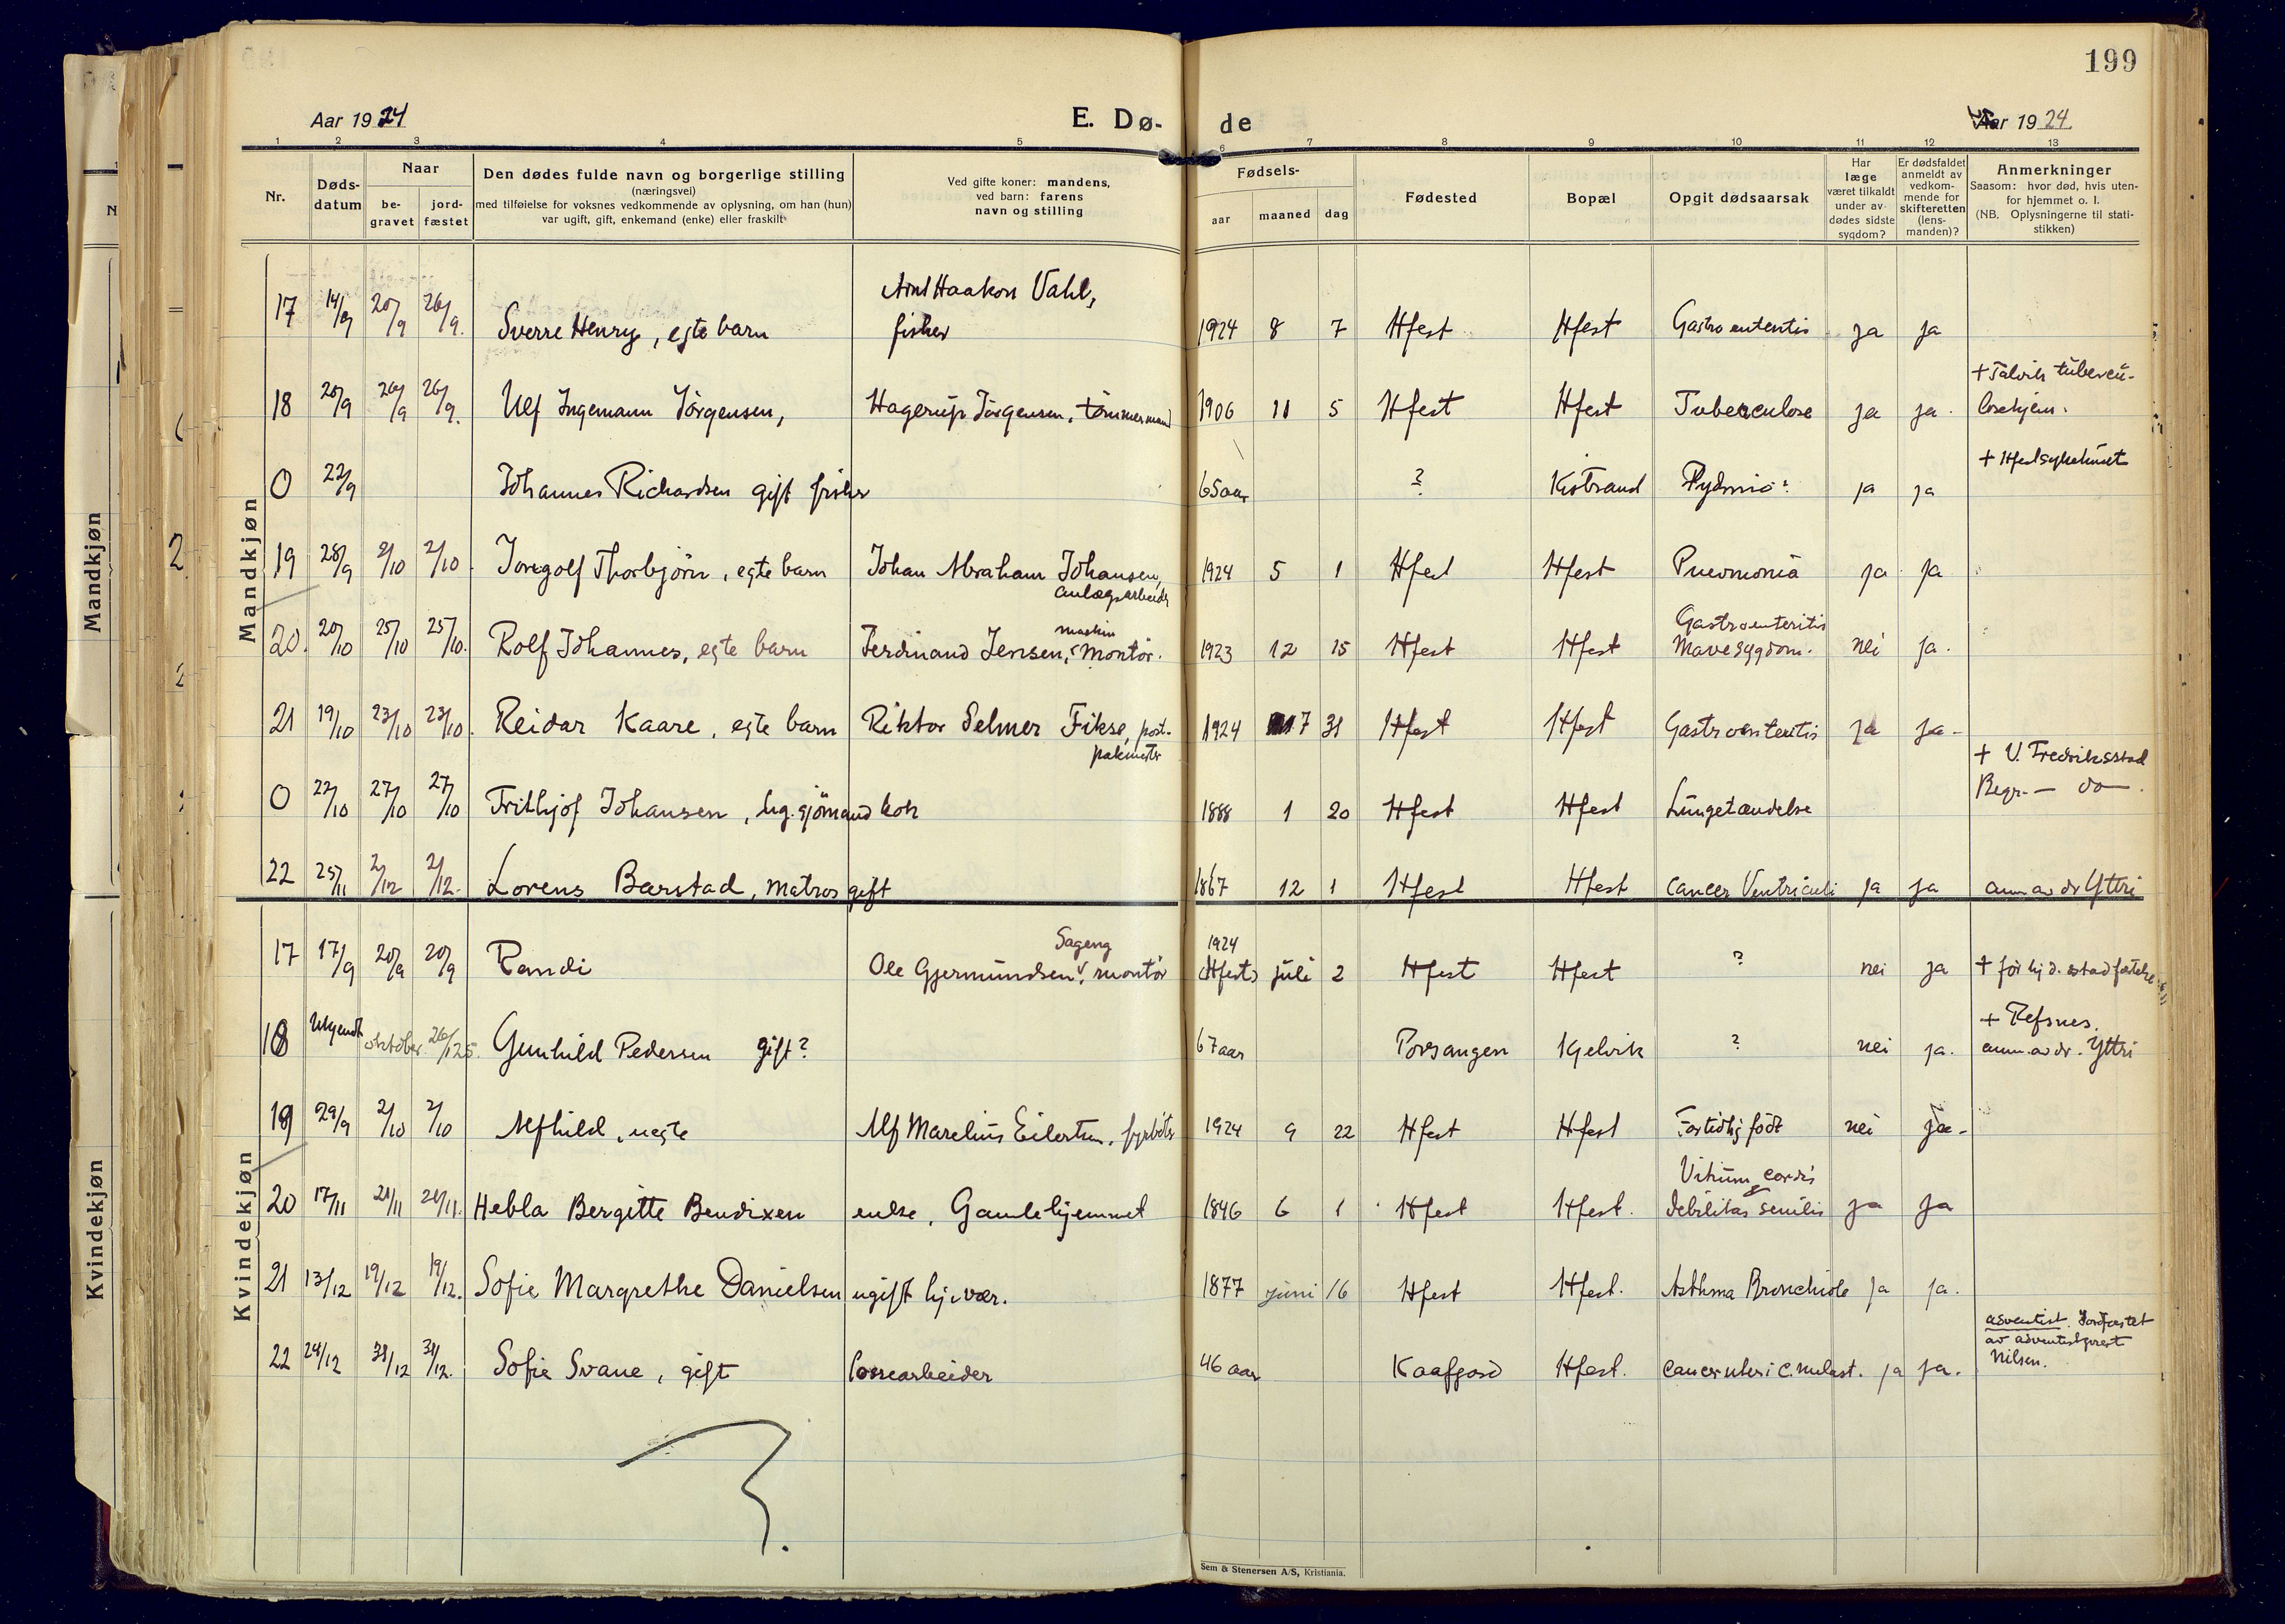 199
Aar 1924
E. Dø-
de
Aar 1924
1 2 3 4 5 6 7 8 9 10 11 12 13
Nr.
Døds-
datum
Naar
be-
gravet
jord-
fæstet
Den dødes fulde navn og borgerlige stilling
(næringsvei)
med tilføielse for voksnes vedkommende av oplysning, om han (hun)
var ugift, gift, enkemand (enke) eller fraskilt
Ved gifte koner: mandens,
ved barn: farens
navn og stilling
Fødsels-
aar
maaned
dag
Fødested
Bopæl
Opgit dødsaarsak
Har
læge
været tilkaldt
under av-
dødes sidste
sygdom?
Er dødsfaldet
anmeldt av
vedkom-
mende for
skifteretten
(lens-
manden)?
Anmerkninger
Saasom: hvor død, hvis uten-
for hjemmet o. l.
(NB. Oplysningerne til stati-
stikken)
Mandkjøn
Mandkjøn
Arnt Haakon Vahl,
17 14/9 20/9 26/9. Sverre Henry, egte barn fisker 1924 8 7 Hfest Hfest Gastroenteritis ja ja
+ Talvik tubercu-
18 20/9 26/9 26/9. Ulf Ingemann Jörgensen, Hagerup Jörgensen, tömmermand 1906 11 5 Hfest Hfest Tuberculose ja ja. losehjem.
+ Hfest sykehuset
0 22/9 Johannes Richardsen gift fisker 65 aar ? Kistrand ja ja
19 28/9 2/10 2/10. Ingolf Thorbjörn, egte barn Johan Abraham Johansen, 1924 5 1 Hfest Hfest Pneumonia ja ja
anlægsarbeider
maskin Gastroenteritis
20. 20/10 25/10 25/10. Rolf Johannes, egte barn Ferdinand Jensen, montör. 1923 12 15 Hfest Hfest Mavesygdom. nei ja.
21 19/10 23/10 23/10. Reidar Kaare, egte barn Riktor Selmer Fikse, post- 1924 7 31 Hfest Hfest Gastroenteritis ja ja-
pakmester
+ V. Fredriksstad
0 22/10 27/10 27/10 Frithjof Johansen, ug. sjömand kok 1888 1 20 Hfest Hfest Lungetændelse Begr. — do —.
22 25/11 2/12 2/12. Lorens Barstad, matros gift 1867 12 1 Hfest Hfest Cancer Ventriculi ja ja anm av dr Yttri
Kvindekjøn
Kvindekjøn
Sageng 1924
17 17/9 20/9 20/9 Randi Ole Gjermundsen, montör (Hfest) juli 2 Hfest Hfest ? nei ja + för hj.d. stadfæstelse
+ Refsnes.
18 Ukjendt oktober 26/125. Gunhild Pedersen gift? 67 aar Porsangen Kjelvik ? nei ja. anm. av dr. Yttri
19 29/9 2/10 2/10 Alfhild, uegte Alf Marelius Eilertsen, fyrböter 1924 9 22 Hfest Hfest Fortidlig födt nei ja-
Vitium cordis
20 17/11 21/11 21/11. Hebla Bergitte Bendixen enke, Gamlehjemmet 1846 6 1 Hfest Hfest. & debilitas senilis ja ja
21 13/12 19/12 19/12. Sofie Margrethe Danielsen ugift hj. vær. 1877 juni 16 Hfest Hfest. Asthma Bronchiole ja ja.
adventist. Jordfæstet
av adventistprest
Nilsen.
22 24/12 31/12 31/12. Sofie Svane, gift lossearbeider 46 aar Kaafjord Hfest. Cancer uteri c. ja ja.
Sem & Stenersen A/S, Kristiania.